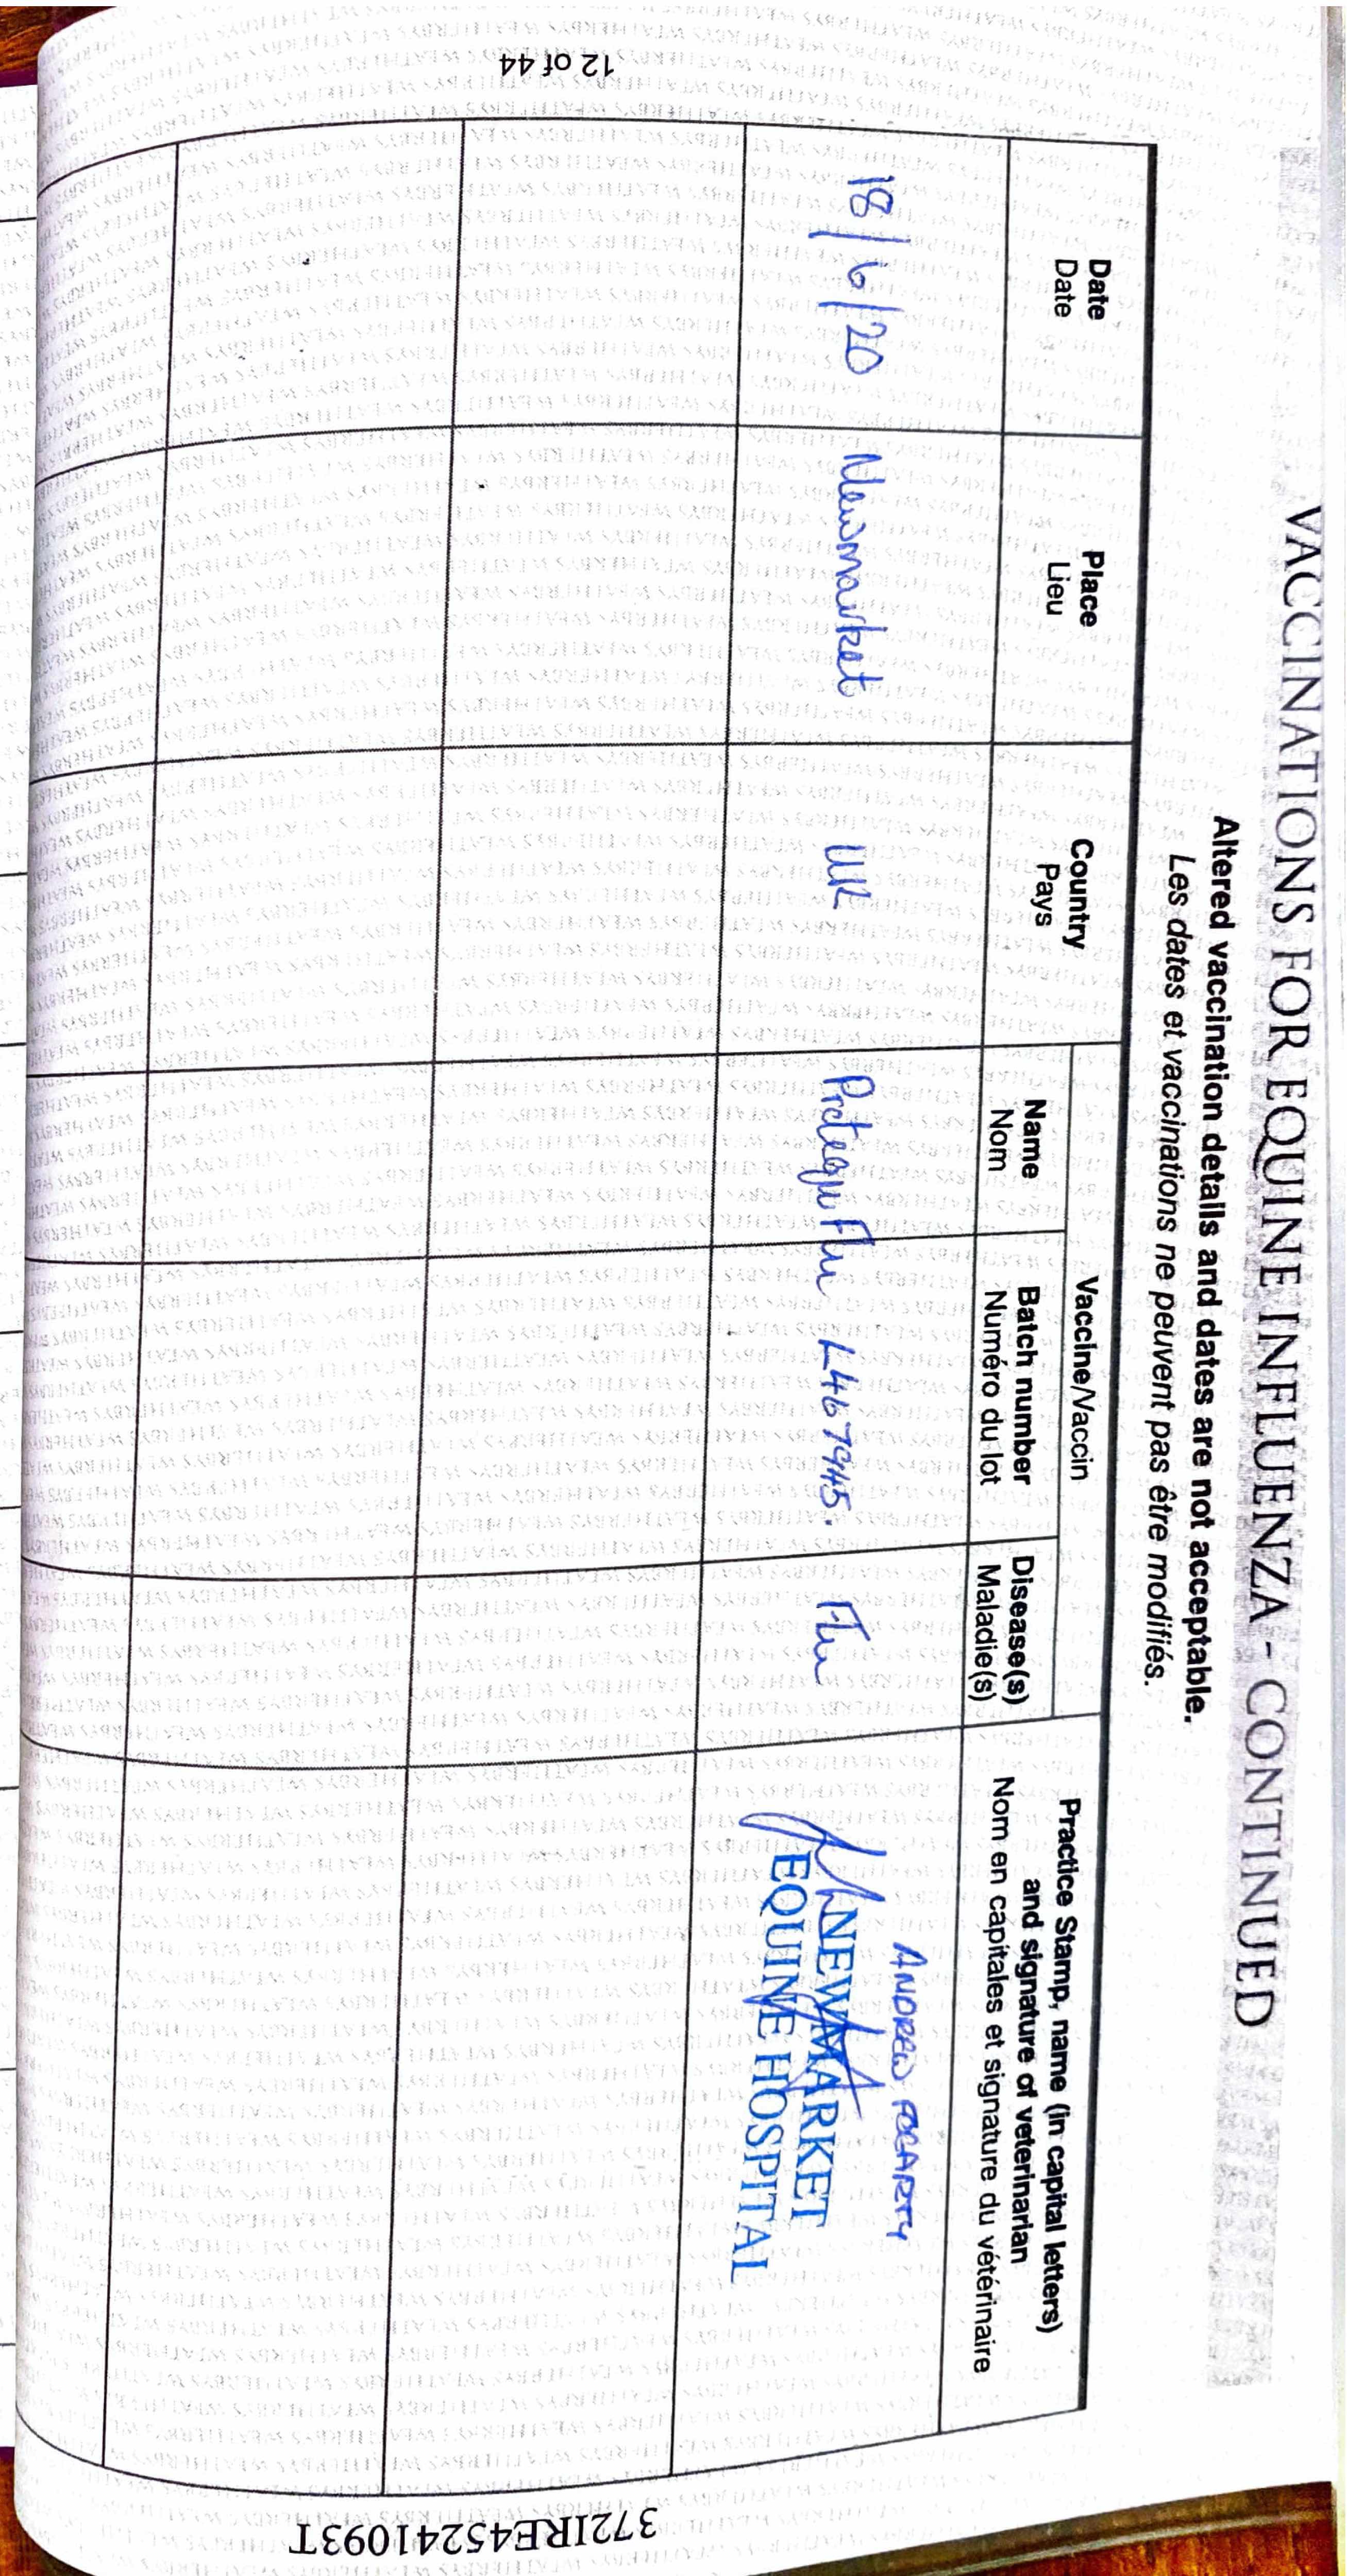 VACCINATIONS FOR EQUINE INFLUENZA - CONTINUED
Altered vaccination details and dates are not acceptable.
Les dates et vaccinations ne peuvent pas être modifiés.
Date
Date
Place
Lieu
Country
Pays
Vaccine/Vaccin
Name
Nom
Batch number
Numéro du lot
Disease(s)
Maladie(s)
Practice Stamp, name (in capital letters)
and signature of veterinarian
Nom en capitales et signature du vétérinaire
18/6/20 Newmarket UK ProteqFlu L467945. Flu
ANDREW FOGARTY
NEWMARKET
EQUINE HOSPITAL
12 of 44
372IRE45241093T